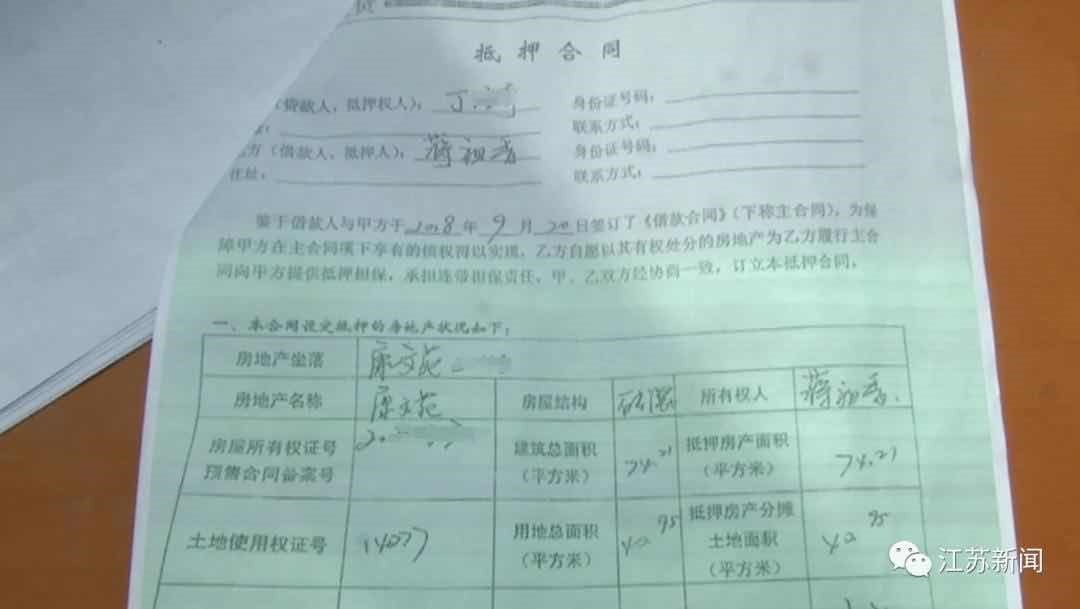 抵押合同
（借款人，抵押权人）：丁 身份证号码：
联系方式：
方（借款人、抵押人）：蒋祖香 身份证号码：
住址： 联系方式：
鉴于借款人与甲方于2018年9月20日签订了《借款合同》（下称主合同），为保
障甲方在主合同项下享有的债权得以实现，乙方自愿以其有权处分的房地产为乙方履行主合
同向甲方提供抵押担保，承担连带担保责任，甲、乙双方经协商一致，订立本抵押合同。
一、本合同设定抵押的房地产状况如下：
房地产坐落 康文苑
房地产名称 康文苑 房屋结构 砖混 所有权人 蒋祖香
房屋所有权证号
预售合同备案号
建筑总面积
（平方米）
74.21
抵押房产面积
（平方米）
74.21
土地使用权证号 14077
用地总面积
（平方米）
42.95
抵押房产分摊
土地面积
（平方米）
42.95
江苏新闻